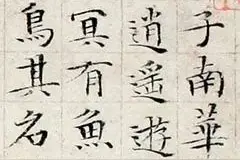 子南華
逍遥遊
冥有魚
鳥其名